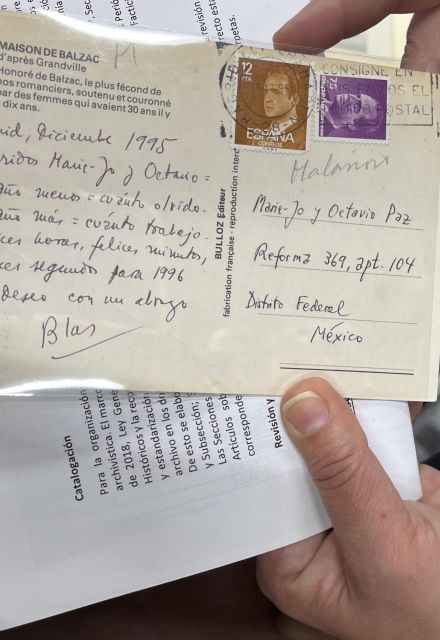 revisión
petas.
MAISON DE BALZAC
d'après Grandville
Honoré de Balzac, le plus fécond de
nos romanciers, soutenu et couronné
par des femmes qui avaient 30 ans il y
dix ans.
12
PTA
ESPAÑA
CORREOS
CONSIGNE EN
POSTAL
Diciembre 1995
Marie-Jo y Octavio =
menos = cuánto olvido.
más = cuánto trabajo.
horas, felices minutos,
segundos para 1996
deseo con un abrazo
Blas
BULLOZ Editeur
fabrication française - reproduction interd
Marie-Jo y Octavio Paz
Reforma 369, apt. 104
Distrito Federal
México
Catalogación
Para la organización
archivística. El marco
de 2018, Ley Gene
Históricos y la reco
y estandarización
archivo en los di
De esto se elabo
y Subsección;
Las Secciones sob
Artículos
corresponde
Revisión y